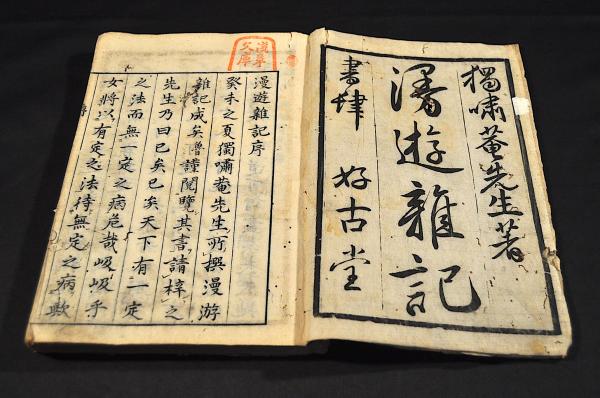 獨嘯菴先生著
漫遊雜記
書肆 好古堂
文庫
漫遊雜記序
癸未之夏獨嘯菴先生所撰漫游
雜記成矣漕謹閱覽其書請梓之
先生乃曰已矣已矣天下有一定
之法而無一定之病危哉岋岋乎
女將以有定之法待無定之病歟